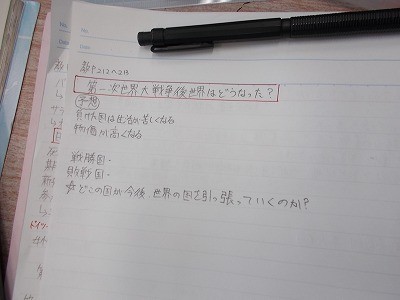 No.
Date
教P212~213
第一次世界大戦争後世界はどうなった?
予想
負けた国は生活が苦しくなる
物価が高くなる
戦勝国-
敗戦国-
☆どこの国が今後、世界の国を引っ張っていくのか?
ドイツ